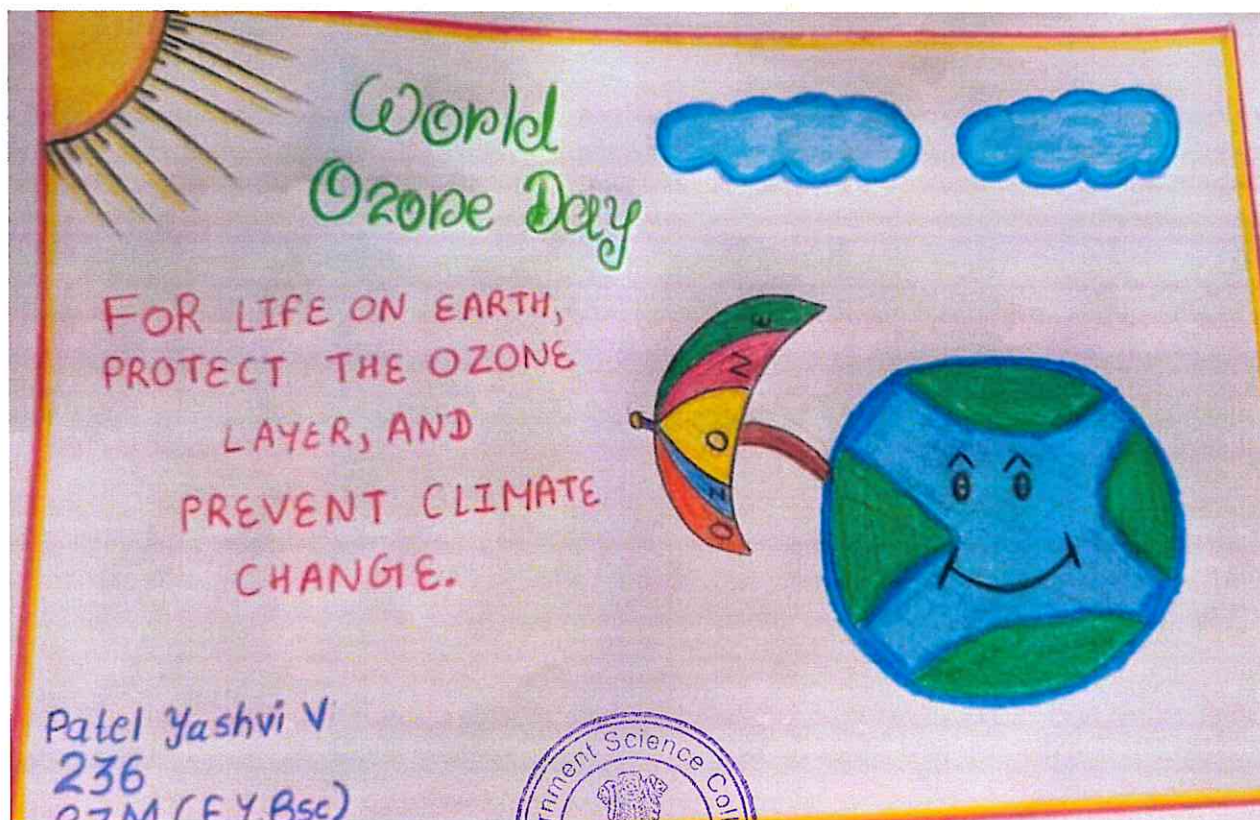 World
Ozone Day
FOR LIFE ON EARTH,
PROTECT THE OZONE
LAYER, AND
PREVENT CLIMATE
CHANGE.
OZONE
Patel Yashvi V
236
(F.Y.Bsc)
Science